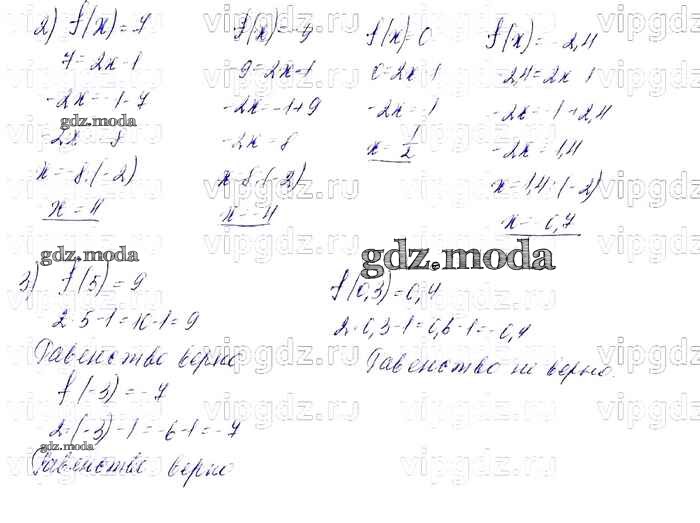 2) f(x) = 7
7 = 2x - 1
-2x = -1 - 7
gdz.moda
-2x = -8
x = -8 : (-2)
x = 4
f(x) = -9
-9 = 2x - 1
-2x = -1 + 9
-2x = 8
x = 8 : (-2)
x = -4
f(x) = 0
0 = 2x - 1
-2x = -1
x = 1/2
f(x) = -2,4
-2,4 = 2x - 1
-2x = -1 + 2,4
-2x = 1,4
x = 1,4 : (-2)
x = -0,7
gdz.moda
gdz.moda
3) f(5) = 9
2 · 5 - 1 = 10 - 1 = 9
Равенство верно
f(-3) = -7
2 · (-3) - 1 = -6 - 1 = -7
gdz.moda
Равенство верно
f(0,3) = 0,4
2 · 0,3 - 1 = 0,6 - 1 = -0,4
Равенство не верно.
vipgdz.ru